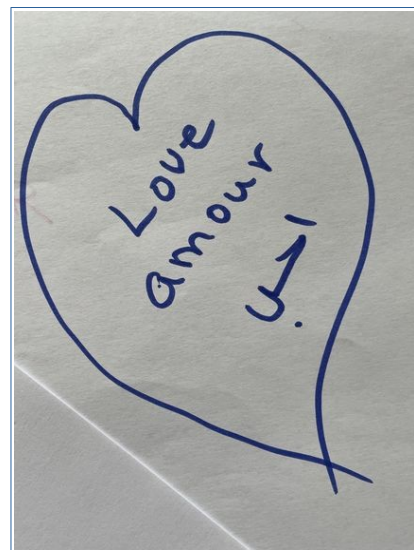 Love
amour
حب